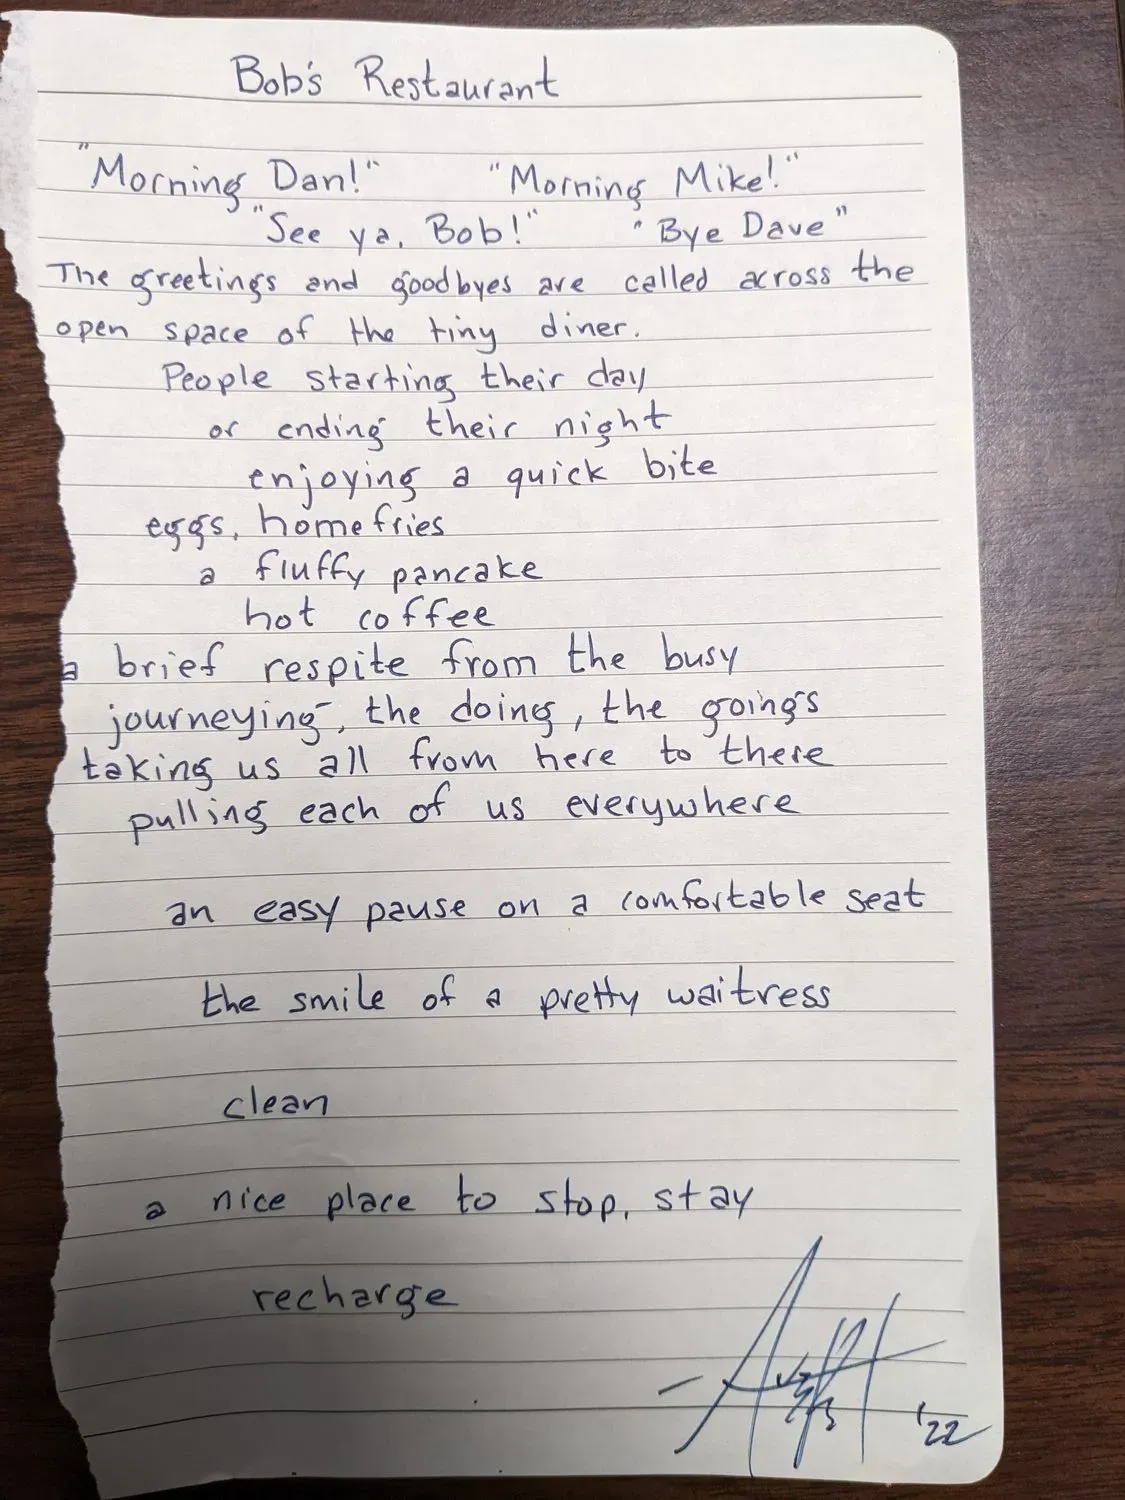 Bob's Restaurant
"Morning Dan!" "Morning Mike!"
"See ya, Bob!" "Bye Dave"
The greetings and goodbyes are called across the
open space of the tiny diner.
People starting their day
or ending their night
enjoying a quick bite
eggs, homefries
a fluffy pancake
hot coffee
a brief respite from the busy
journeying, the doing, the goings
taking us all from here to there
pulling each of us everywhere
an easy pause on a comfortable seat
the smile of a pretty waitress
clean
a nice place to stop, stay
recharge
'22